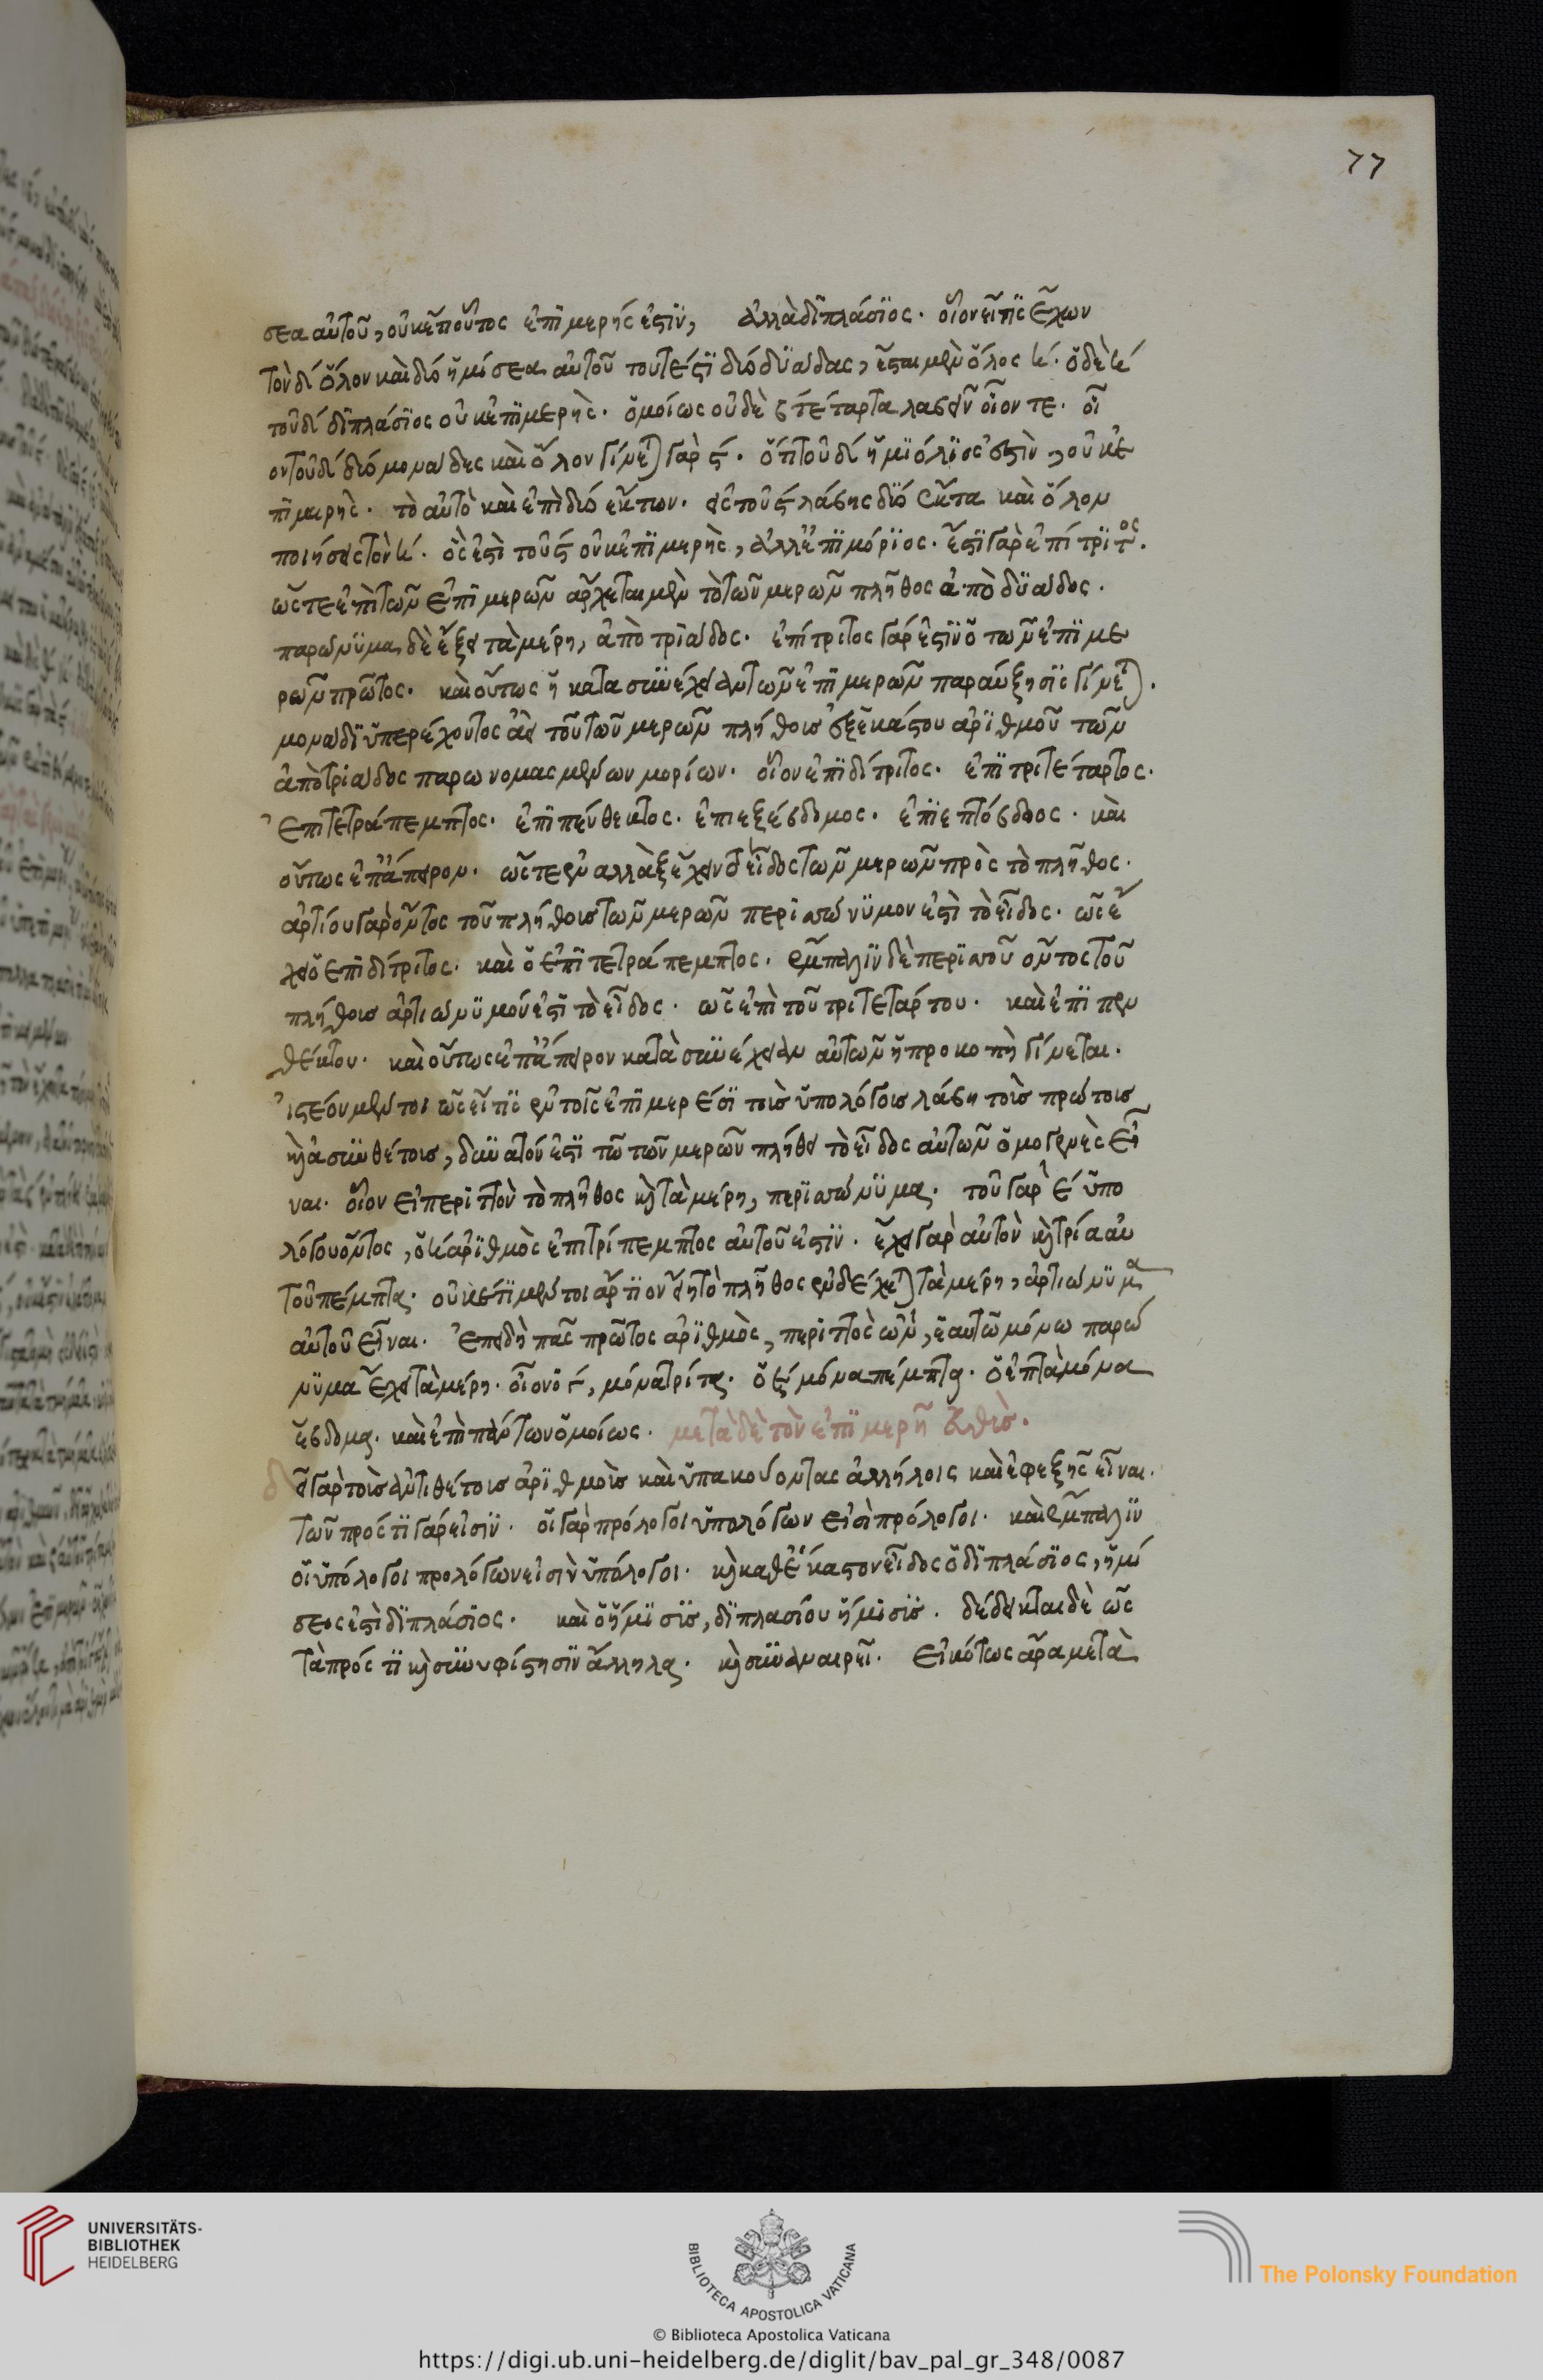 77
σεα αὐτοῦ, οὐκέτι οὗτος ἐπιμερής ἐστιν, ἀλλὰ διπλάσιος. οἷον εἴ τις ἔχων
τὸν δ ὅλον καὶ δύο ἡμίσεα αὐτοῦ τουτέστι δύο δυάδας, ἔσται μὲν ὅλος η. ὁ δὲ η
τοῦ δ διπλάσιος οὐκ ἐπιμερής. ὁμοίως οὐδὲ β τέταρτα λαβεῖν οἷόν τε. οἷ
ον τοῦ δ δύο μονάδες καὶ ὅλον γίνεται γὰρ ς. ὅτι τοῦ δ ἡμιόλιός ἐστιν, οὐκ ἐ
πιμερής. τὸ αὐτὸ καὶ ἐπὶ δύο ἕκτων. εἰ τοῦ ς λάβῃς δύο ἕκτα καὶ ὅλον
ποιήσεις τὸν η. ὅς ἐστι τοῦ ς οὐκ ἐπιμερής, ἀλλ' ἐπιμόριος. ἔστι γὰρ ἐπίτριτος.
ὥστε ἐπὶ τῶν ἐπιμερῶν ἄρχεται μὲν τὸ τῶν μερῶν πλῆθος ἀπὸ δυάδος.
παρώνυμα δὲ ἕξει τὰ μέρη, ἀπὸ τριάδος. ἐπίτριτος γάρ ἐστιν ὁ τῶν ἐπιμε
ρῶν πρῶτος. καὶ οὕτως ἡ κατὰ συνέχειαν τῶν ἐπιμερῶν παραύξησις γίνεται.
μονάδι ὑπερέχοντος ἀεὶ τοῦ τῶν μερῶν πλήθους ἐξ ἑκάστου ἀριθμοῦ τῶν
ἀπὸ τριάδος παρωνομασμένων μορίων. οἷον ἐπιδίτριτος. ἐπιτριτέταρτος.
ἐπιτετράπεμπτος. ἐπιπένθεκτος. ἐπιεξέβδομος. ἐπιεπτόγδοος. καὶ
οὕτως ἐπ' ἄπειρον. ὥστε ἐναλλὰξ ἔχειν τὸ εἶδος τῶν μερῶν πρὸς τὸ πλῆθος.
ἀρτίου γὰρ ὄντος τοῦ πλήθους τῶν μερῶν περισσώνυμόν ἐστι τὸ εἶδος. ὡς ἔ
χει ὁ ἐπιδίτριτος. καὶ ὁ ἐπιτετράπεμπτος. ἔμπαλιν δὲ περισσοῦ ὄντος τοῦ
πλήθους ἀρτιώνυμόν ἐστι τὸ εἶδος. ὡς ἐπὶ τοῦ τριτετάρτου. καὶ ἐπιπεν
θέκτου. καὶ οὕτως ἐπ' ἄπειρον κατὰ συνέχειαν αὐτῶν ἡ προκοπὴ γίνεται.
ἰστέον μέντοι ὡς εἴ τις ἐν τοῖς ἐπιμερέσι τοὺς ὑπολόγους λάβῃ τοὺς πρώτους
καὶ ἀσυνθέτους, δυνατόν ἐστι τῷ τῶν μερῶν πλήθει τὸ εἶδος αὐτῶν ὁμογενὲς εἶ
ναι. οἷον εἰ περιττὸν τὸ πλῆθος καὶ τὰ μέρη, περισσώνυμα. τοῦ γὰρ ε ὑπο
λόγου ὄντος, ὁ η ἀριθμὸς ἐπιτρίπεμπτος αὐτοῦ ἐστιν. ἔχει γὰρ αὐτὸν καὶ τρία αὐ
τοῦ πέμπτα. οὐκέτι μέντοι ἄρτιον εἴη τὸ πλῆθος ἐνδέχεται τὰ μέρη, ἀρτιώνυμα
αὐτοῦ εἶναι. ἐπειδὴ πᾶς πρῶτος ἀριθμὸς, περιττὸς ὢν, ἑαυτῷ μόνῳ παρώ
νυμα ἔχει τὰ μέρη. οἷον ὁ γ, μόνα τρίτα. ὁ ε μόνα πέμπτα. ὁ ἑπτὰ μόνα
ἕβδομα. καὶ ἐπὶ πάντων ὁμοίως. μετὰ δὲ τὸν ἐπιμερῆ εὐθύς.
δεῖ γὰρ τοὺς ἀντιθέτους ἀριθμοὺς καὶ ὑπακούοντας ἀλλήλοις καὶ ἐφεξῆς εἶναι.
τῶν πρός τι γάρ εἰσιν. οἱ γὰρ πρόλογοι ὑπολόγων εἰσὶ πρόλογοι. καὶ ἔμπαλιν
οἱ ὑπόλογοι προλόγων εἰσὶν ὑπόλογοι. καὶ καθ' ἕκαστον εἶδος ὁ διπλάσιος, ἡμί
σεος ἐστὶ διπλάσιος. καὶ ὁ ἥμισυς, διπλασίου ἥμισυς. δέδεικται δὲ ὡς
τὰ πρός τι καὶ συνυφίστησιν ἄλληλα. καὶ συναναιρεῖ. εἰκότως ἄρα μετὰ
UNIVERSITÄTS-
BIBLIOTHEK
HEIDELBERG
BIBLIOTECA APOSTOLICA VATICANA
The Polonsky Foundation
© Biblioteca Apostolica Vaticana
https://digi.ub.uni-heidelberg.de/diglit/bav_pal_gr_348/0087